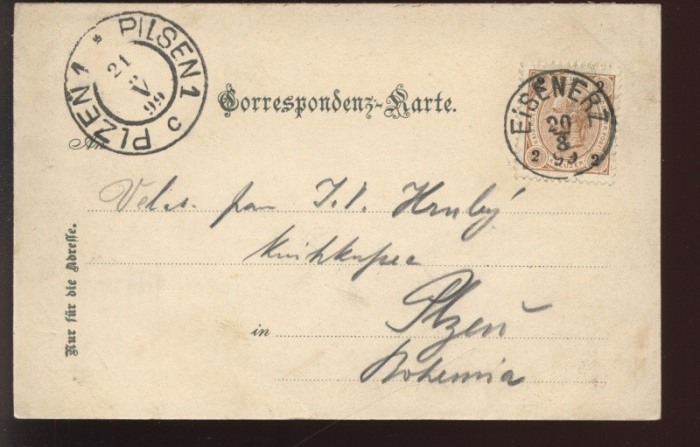 * PILSEN 1 PLZEN 1 c
21
99
Correspondenz-Karte.
2 2
EISENERZ
20
8
99
2 2
An
Vel. s. pan I. L. Hrubý
knihkupec
in Plzeň
Bohemia
Nur für die Adresse.